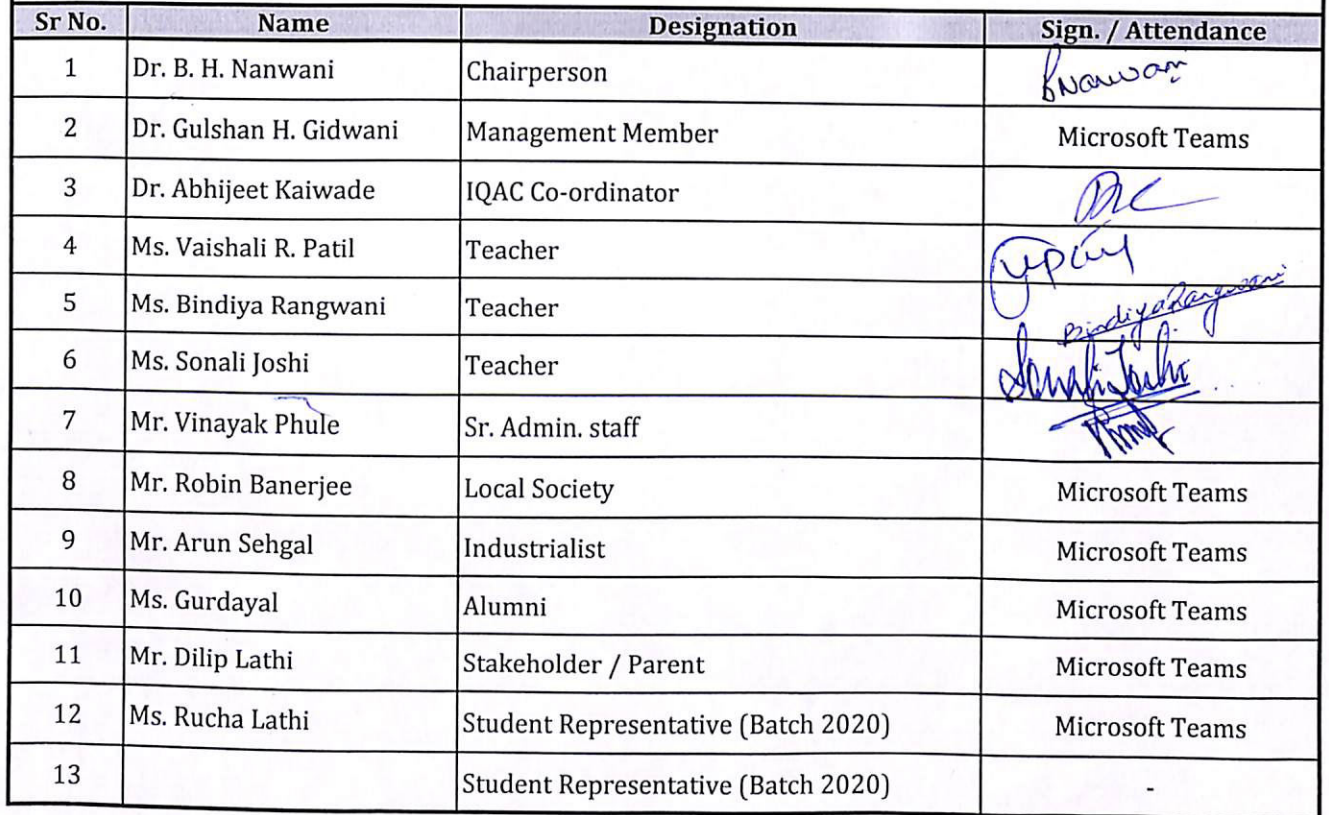 Sr No. Name Designation Sign. / Attendance
1 Dr. B. H. Nanwani Chairperson Bnanwani
2 Dr. Gulshan H. Gidwani Management Member Microsoft Teams
3 Dr. Abhijeet Kaiwade IQAC Co-ordinator
4 Ms. Vaishali R. Patil Teacher
5 Ms. Bindiya Rangwani Teacher Bindiya Rangwani
6 Ms. Sonali Joshi Teacher Sonali Joshi
7 Mr. Vinayak Phule Sr. Admin. staff
8 Mr. Robin Banerjee Local Society Microsoft Teams
9 Mr. Arun Sehgal Industrialist Microsoft Teams
10 Ms. Gurdayal Alumni Microsoft Teams
11 Mr. Dilip Lathi Stakeholder / Parent Microsoft Teams
12 Ms. Rucha Lathi Student Representative (Batch 2020) Microsoft Teams
13 Student Representative (Batch 2020) -